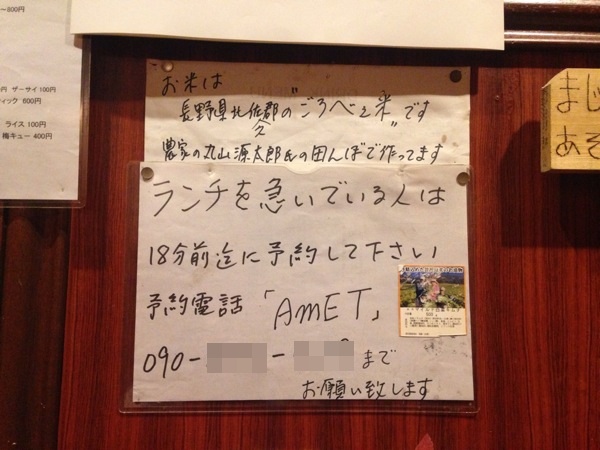 ～800円
ザーサイ 100円
ティック 600円
ライス 100円
梅キュー 400円
お米は
長野県北佐久郡の"ごろべえ米"です
農家の丸山源太郎氏の田んぼで作ってます
ランチを急いでいる人は
18分前迄に予約して下さい
予約電話「AMET」
090- - まで
お願い致します
まじ
あそ